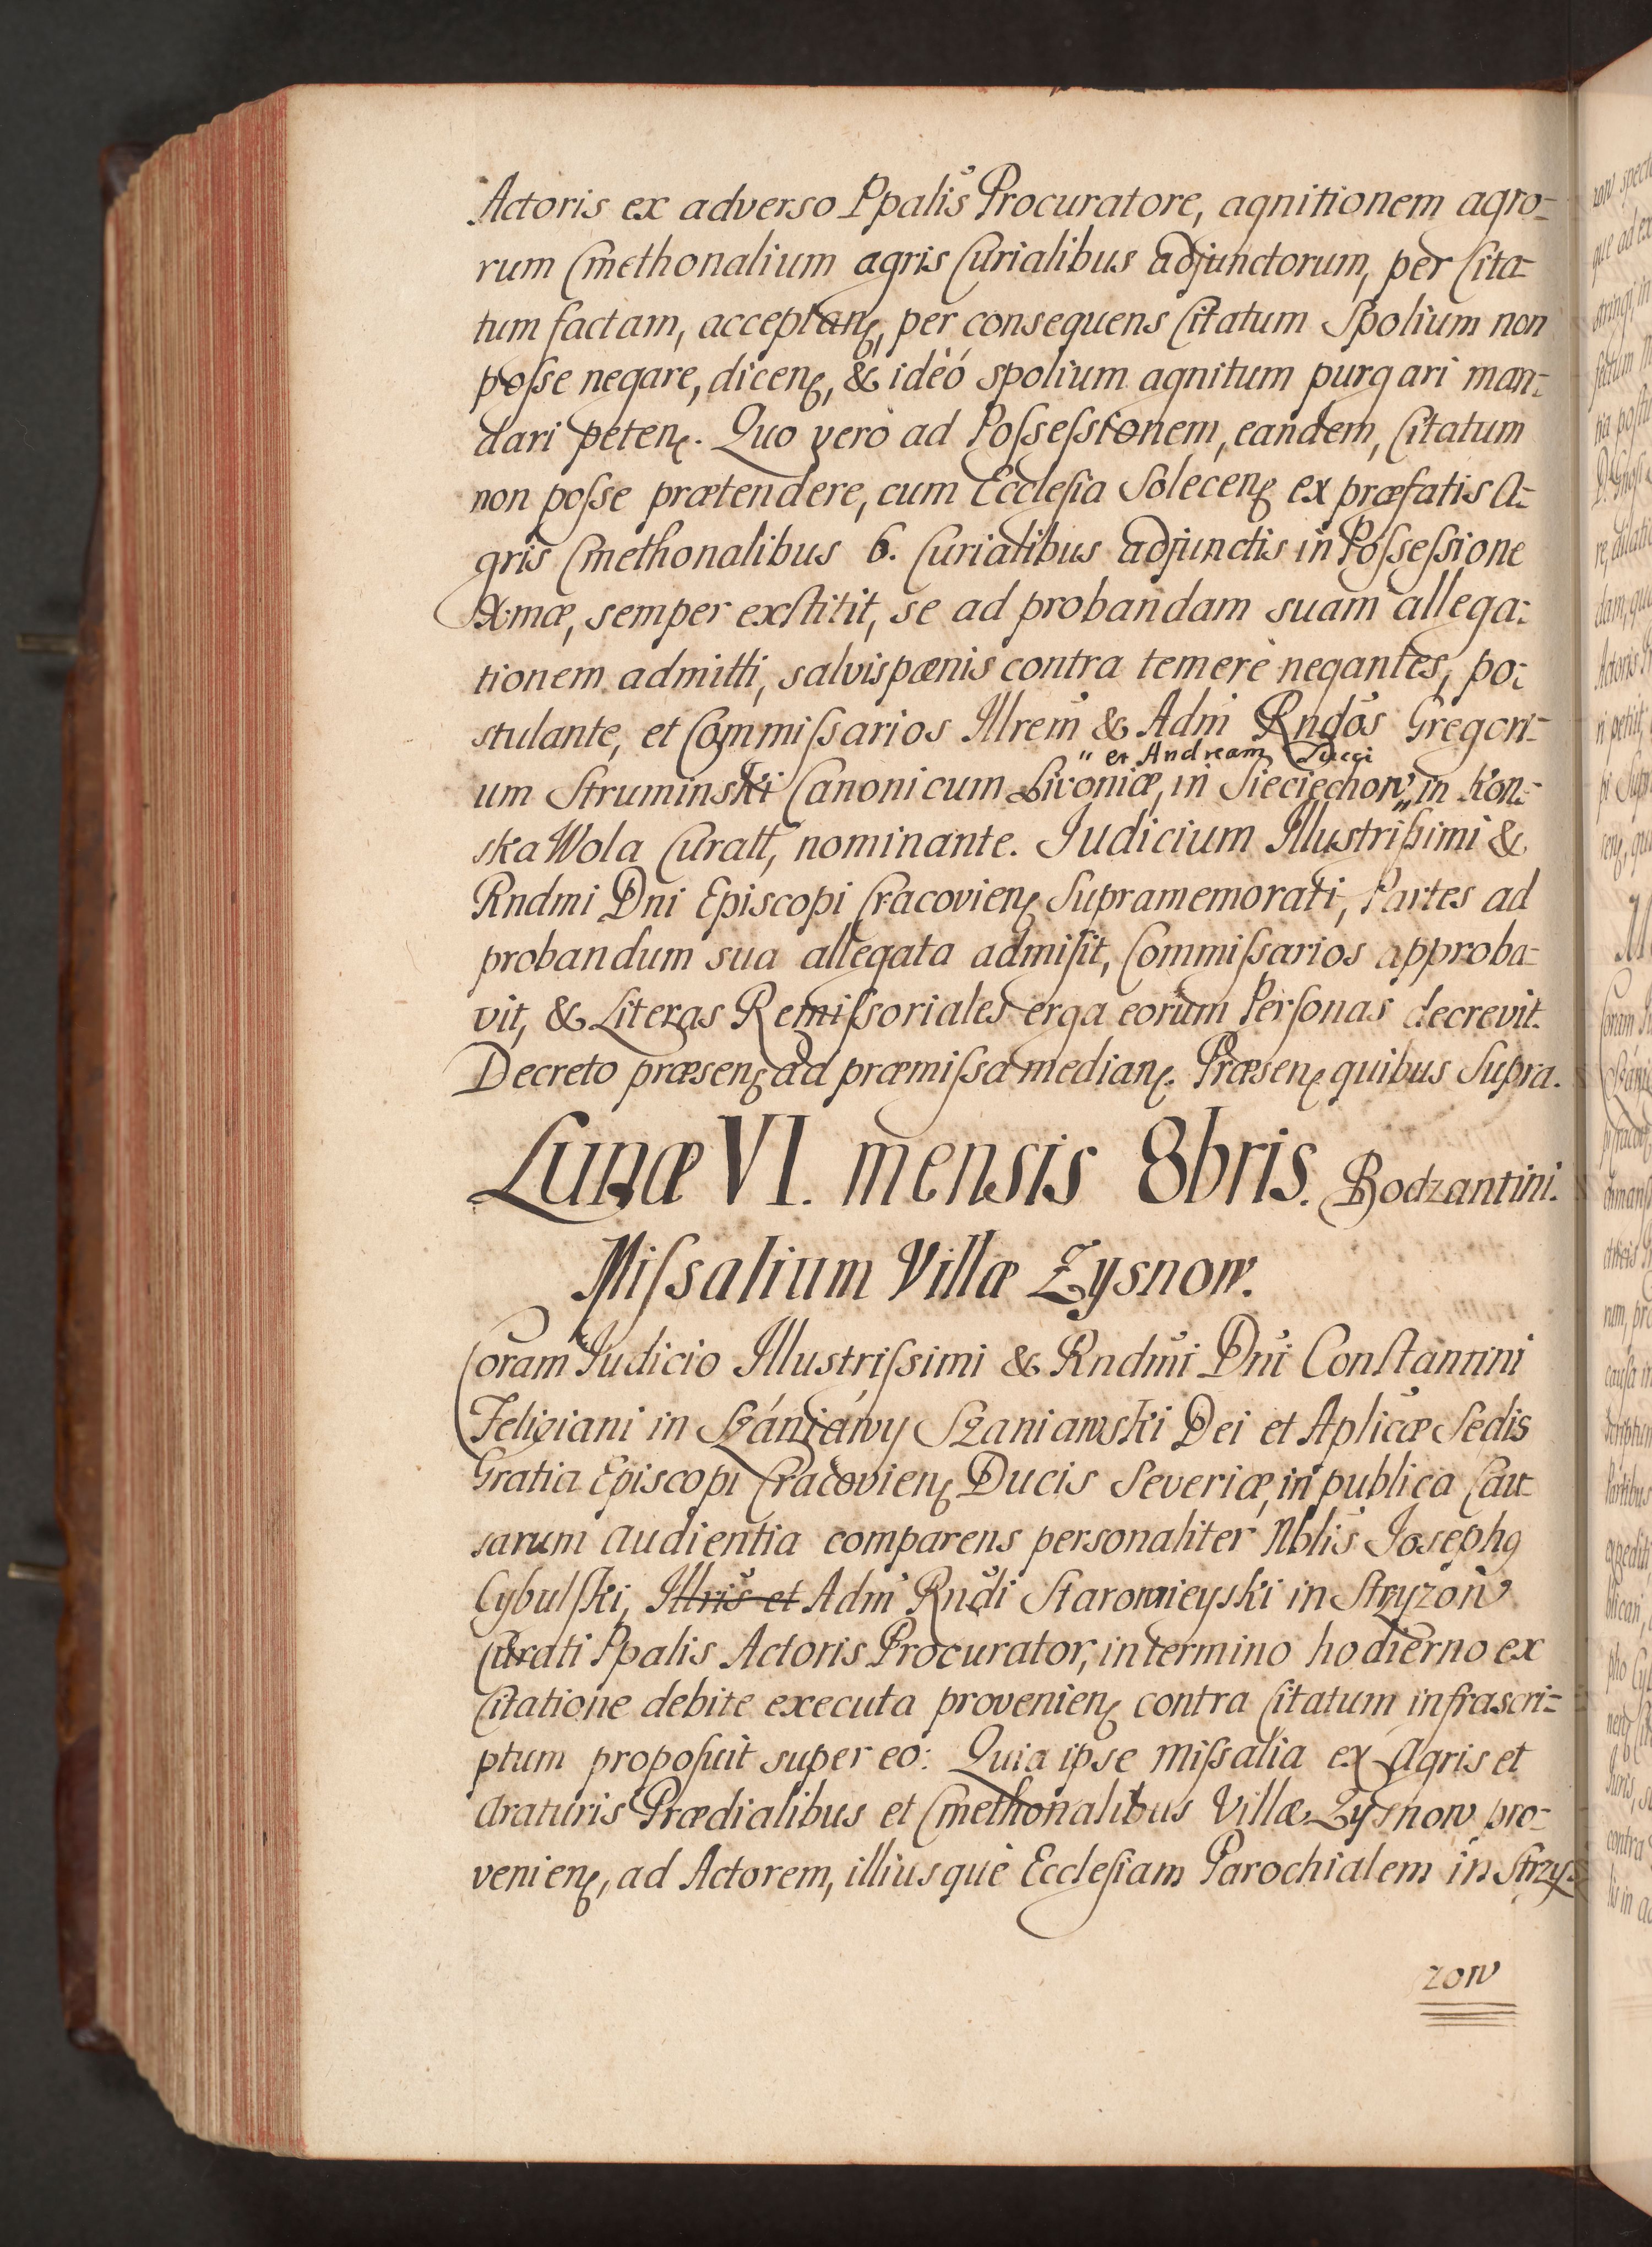 Actoris ex adverso Ppalis Procuratore, agnitionem agro-
rum Cmethonalium agris Curialibus adjunctorum, per Cita-
tum factam, acceptanꝫ, per consequens Citatum Spolium non
poſse negare, dicenꝫ, & ideó spolium agnitum purgari man-
dari petenꝫ. Quo verò ad Poſseſsionem, eandem, Citatum
non poſse prætendere, cum Eccleſia Solecenꝫ ex præfatis A-
gris Cmethonalibus 6. Curialibus adjunctis in Poſseſsione
Xmæ, semper exſtitit, se ad probandam suam allega-
tionem admitti, salvis pænis contra temerè negantes, po-
stulante, et Commiſsarios Illrem & Adm Rndos Gregori-
" et Andream Ducci
um Struminski Canonicum Livoniæ, in Sieciechow" in Kon-
ska Wola Curatt, nominante. Judicium Illustriſsimi &
Rndmi Dni Episcopi Cracovienꝫ Supramemorati, Partes ad
probandum sua allegata admiſit, Commiſsarios approba-
vit, & Literas Remiſsoriales erga eorum Perſonas decrevit.
Decreto præsenꝫ ad præmiſsa medianꝫ. Præsenꝫ quibus Supra.
Lunæ VI. mensis 8bris. Bodzantini.
Miſsalium Villæ Zysnow.
Coram Judicio Illustriſsimi & Rndmi Dni Conſtantini
Feliciani in Szániáwy Szaniawski Dei et Aplicæ Sedis
Gratia Episcopi Cracovienꝫ Ducis Severiæ, in publica Cau-
sarum audientia comparens personaliter Nblis Josephꝯ
Cybulſki, Illris et Adm Rndi Starowieyski in Stryzow
Curati Ppalis Actoris Procurator, in termino hodierno ex
Citatione debite executa provenienꝫ contra Citatum infrascri-
ptum propoſuit super eo: Quia ipse Miſsalia ex Agris et
Araturis Prædialibus et Cmethonalibus Villæ Zysnow pro-
venienꝫ, ad Actorem, illiusquè Eccleſiam Parochialem in Strzy-
zow